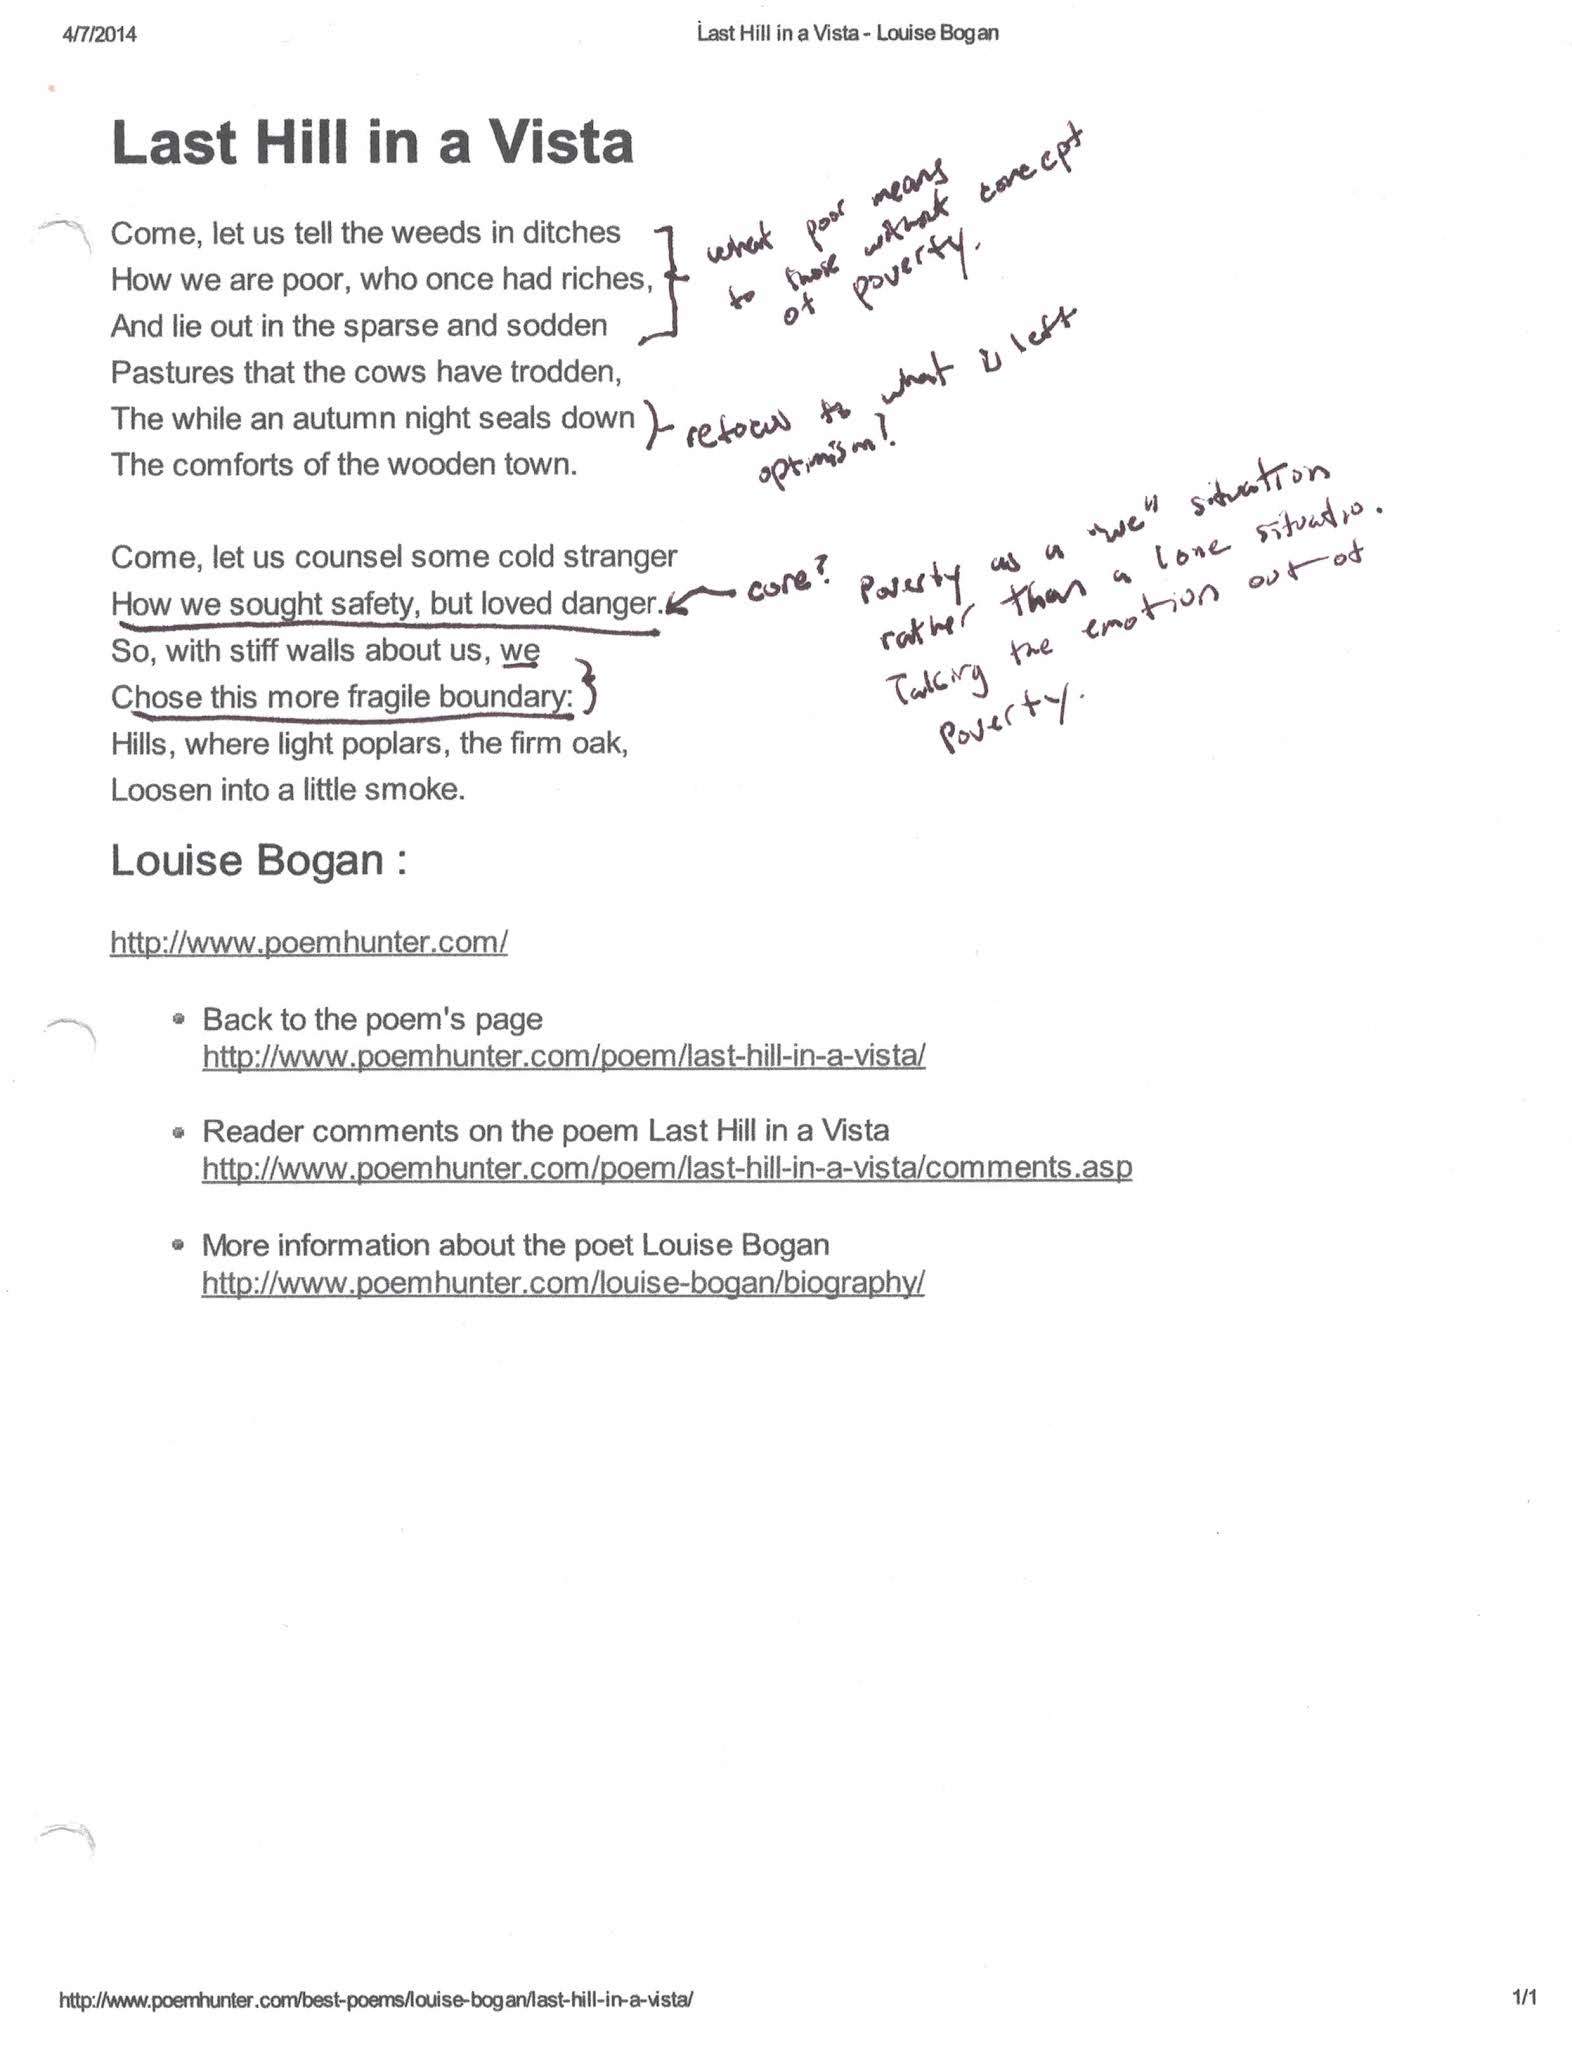 4/7/2014
Last Hill in a Vista - Louise Bogan
Last Hill in a Vista
Come, let us tell the weeds in ditches
How we are poor, who once had riches,
And lie out in the sparse and sodden
Pastures that the cows have trodden,
The while an autumn night seals down
The comforts of the wooden town.
Come, let us counsel some cold stranger
How we sought safety, but loved danger.
So, with stiff walls about us, we
Chose this more fragile boundary:
Hills, where light poplars, the firm oak,
Loosen into a little smoke.
what poor means
to those without concept
of poverty.
refocus to what is left
optimism?
core?
Poverty as a "we" situation
rather than a lone situatio.
Taking the emotion out of
Poverty.
Louise Bogan :
http://www.poemhunter.com/
Back to the poem's page
http://www.poemhunter.com/poem/last-hill-in-a-vista/
Reader comments on the poem Last Hill in a Vista
http://www.poemhunter.com/poem/last-hill-in-a-vista/comments.asp
More information about the poet Louise Bogan
http://www.poemhunter.com/louise-bogan/biography/
http://www.poemhunter.com/best-poems/louise-bogan/last-hill-in-a-vista/
1/1